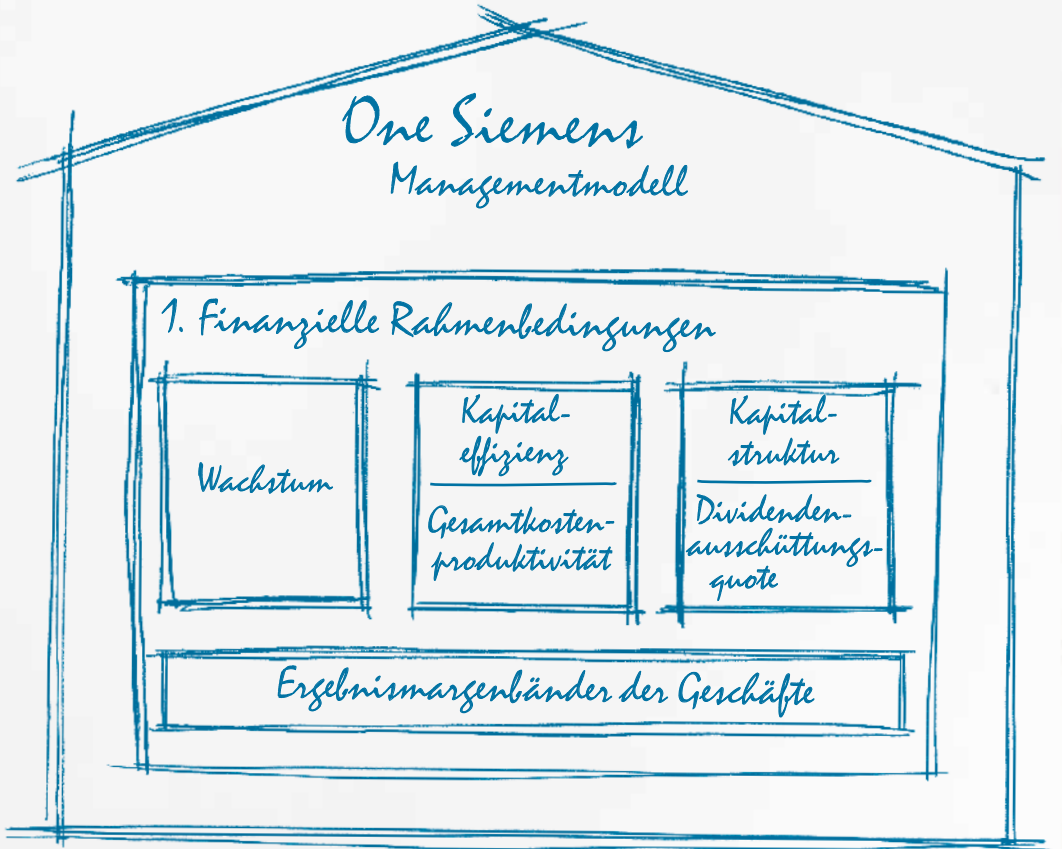 One Siemens
Managementmodell
1. Finanzielle Rahmenbedingungen
Wachstum
Kapital-
effizienz
Gesamtkosten-
produktivität
Kapital-
struktur
Dividenden-
ausschüttungs-
quote
Ergebnismargenbänder der Geschäfte